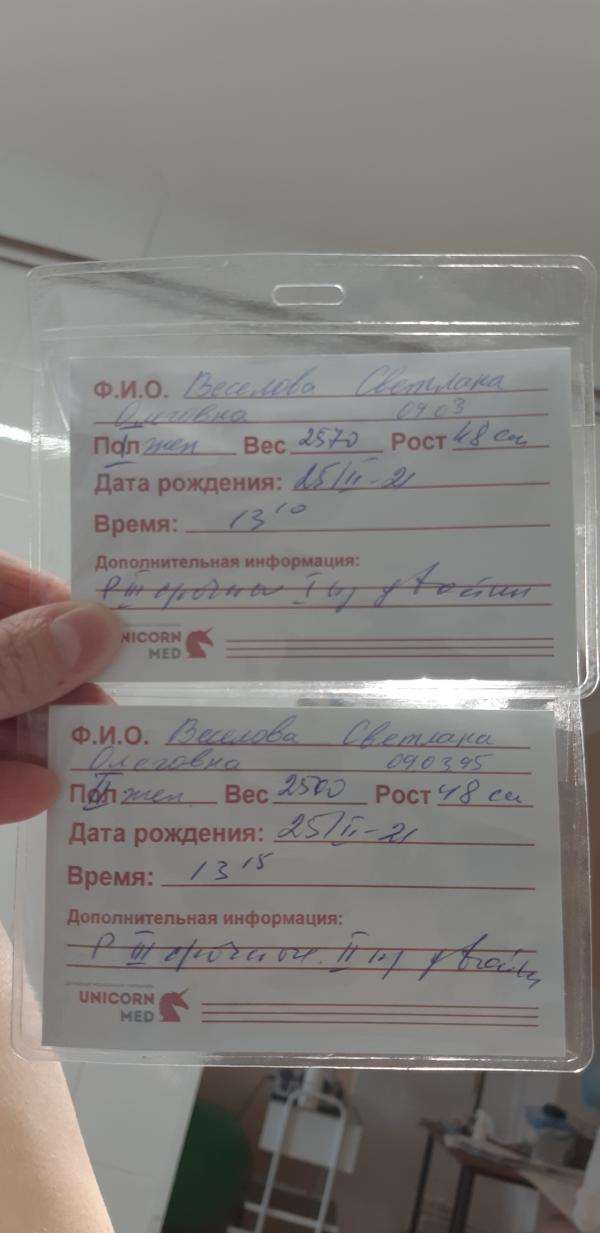 Ф.И.О. Веселова Светлана
Олеговна 0903
Пол I жен Вес 2570 Рост 48 см
Дата рождения: 25/II-21
Время: 13 10
Дополнительная информация:
Р III срочные I из двойни
UNICORN
MED
Ф.И.О. Веселова Светлана
Олеговна 090395
Пол II жен. Вес 2500 Рост 48 см
Дата рождения: 25/II-21
Время: 13 15
Дополнительная информация:
Р III срочные. II из двойни
UNICORN
MED